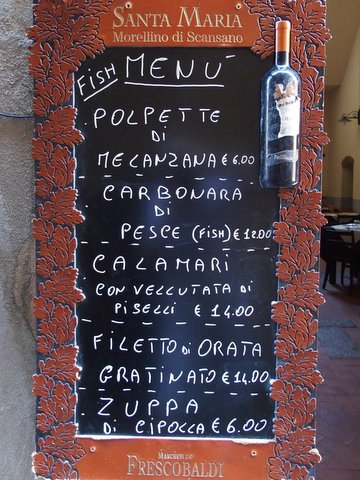 SANTA MARIA
Morellino di Scansano
FISH MENU'
POLPETTE
DI
MELANZANA € 6.00
CARBONARA
DI
PESCE (FISH) € 12.00
CALAMARI
CON VELLUTATA DI
PISELLI € 14.00
FILETTO DI ORATA
GRATINATO € 14.00
ZUPPA
DI CIPOLLA € 6.00
MARCHESI DE'
FRESCOBALDI